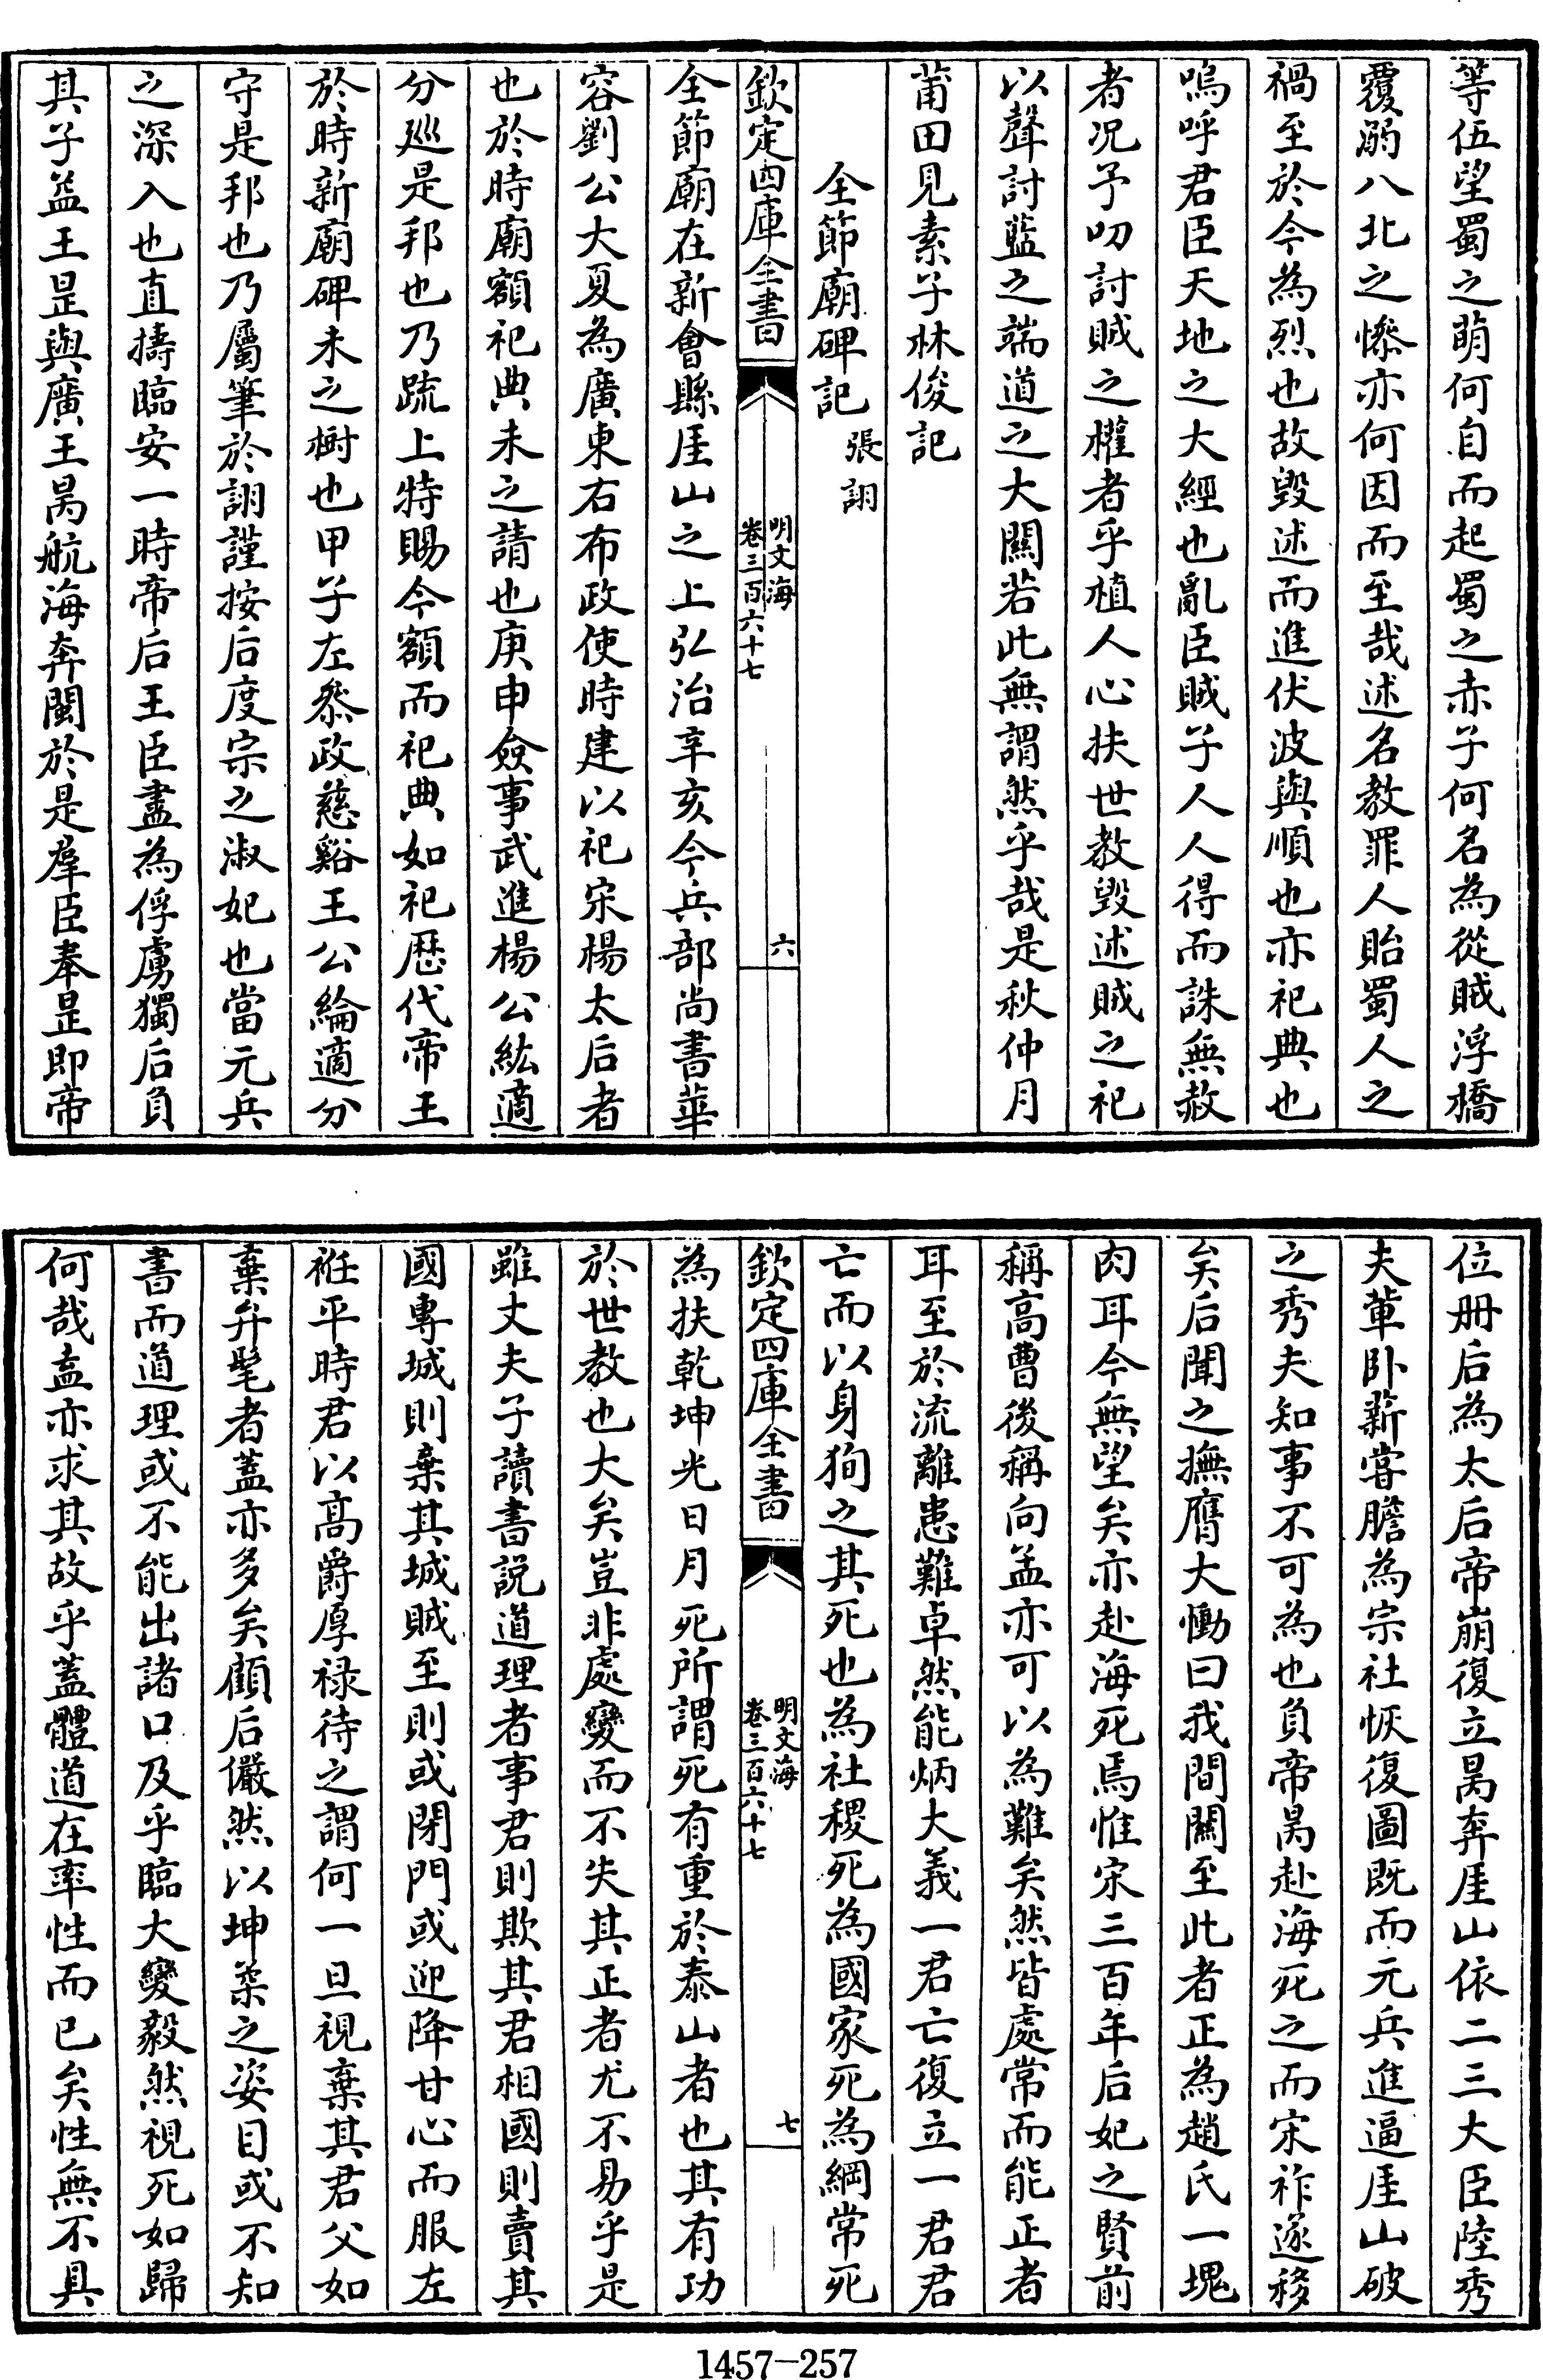 等伍望蜀之萌何自而起蜀之赤子何名為從賊浮橋
覆溺八北之慘亦何因而至哉述名教罪人貽蜀人之
禍至於今為烈也故毀述而進伏波與順也亦祀典也
嗚呼君臣天地之大經也亂臣賊子人人得而誅無赦
者况予叨討賊之權者乎植人心扶世教毀述賊之祀
以聲討藍之端道之大關若此無謂然乎哉是秋仲月
莆田見素子林俊記
全節廟碑記 張詡
欽定四庫全書
明文海
卷三百六十七
六
全節廟在新會縣厓山之上弘治辛亥今兵部尚書華
容劉公大夏為廣東右布政使時建以祀宋楊太后者
也於時廟額祀典未之請也庚申僉事武進楊公紘適
分廵是邦也乃疏上特賜今額而祀典如祀歴代帝王
於時新廟碑未之樹也甲子左叅政慈谿王公綸適分
守是邦也乃屬筆於詡謹按后度宗之淑妃也當元兵
之深入也直擣臨安一時帝后王臣盡為俘虜獨后負
其子益王昰與廣王昺航海奔閩於是羣臣奉昰即帝
位册后為太后帝崩復立昺奔厓山依二三大臣陸秀
夫軰卧薪嘗膽為宗社恢復圖既而元兵進逼厓山破
之秀夫知事不可為也負帝昺赴海死之而宋祚遂移
矣后聞之撫膺大慟曰我間關至此者正為趙氏一塊
肉耳今無望矣亦赴海死焉惟宋三百年后妃之賢前
稱高曹後稱向孟亦可以為難矣然皆處常而能正者
耳至於流離患難卓然能炳大義一君亡復立一君君
亡而以身狥之其死也為社稷死為國家死為綱常死
欽定四庫全書
明文海
卷三百六十七
七
為扶乾坤光日月死所謂死有重於泰山者也其有功
於世教也大矣豈非處變而不失其正者尤不易乎是
雖丈夫子讀書説道理者事君則欺其君相國則賣其
國專城則棄其城賊至則或閉門或迎降甘心而服左
袵平時君以高爵厚禄待之謂何一旦視棄其君父如
棄弁髦者蓋亦多矣顧后儼然以坤柔之姿目或不知
書而道理或不能出諸口及乎臨大變毅然視死如歸
何哉盍亦求其故乎蓋體道在率性而已矣性無不具
1457-257